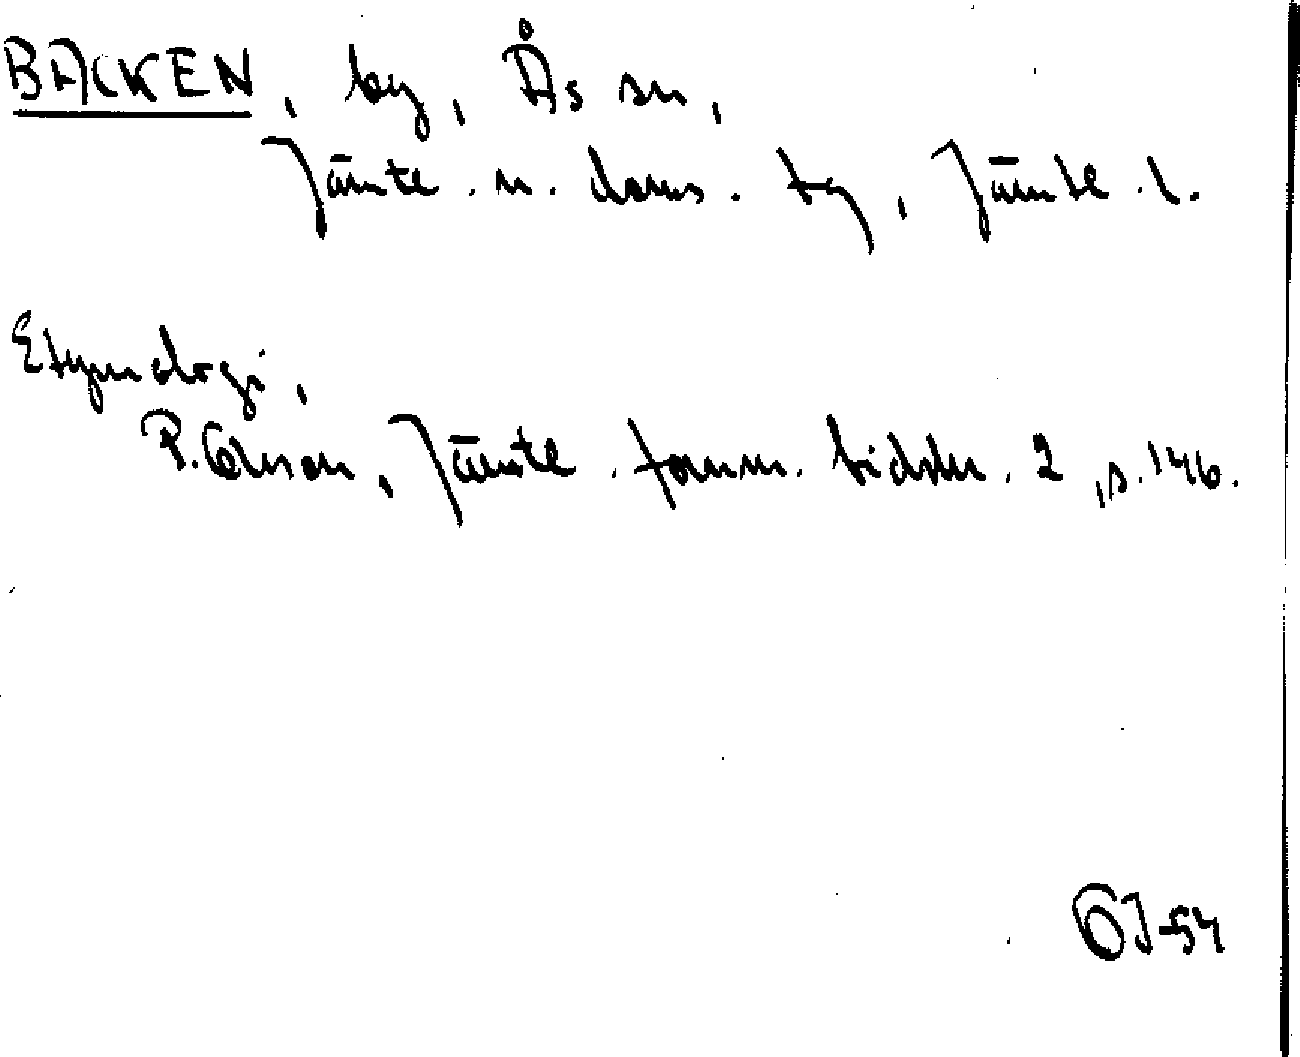 BACKEN, by, Ås sn,
Jämtl. n. doms. tg, Jämtl. l.
Etymologi,
P. Olsson, Jämtl. fornm. tidskr. 2, s. 146.
OJ-54